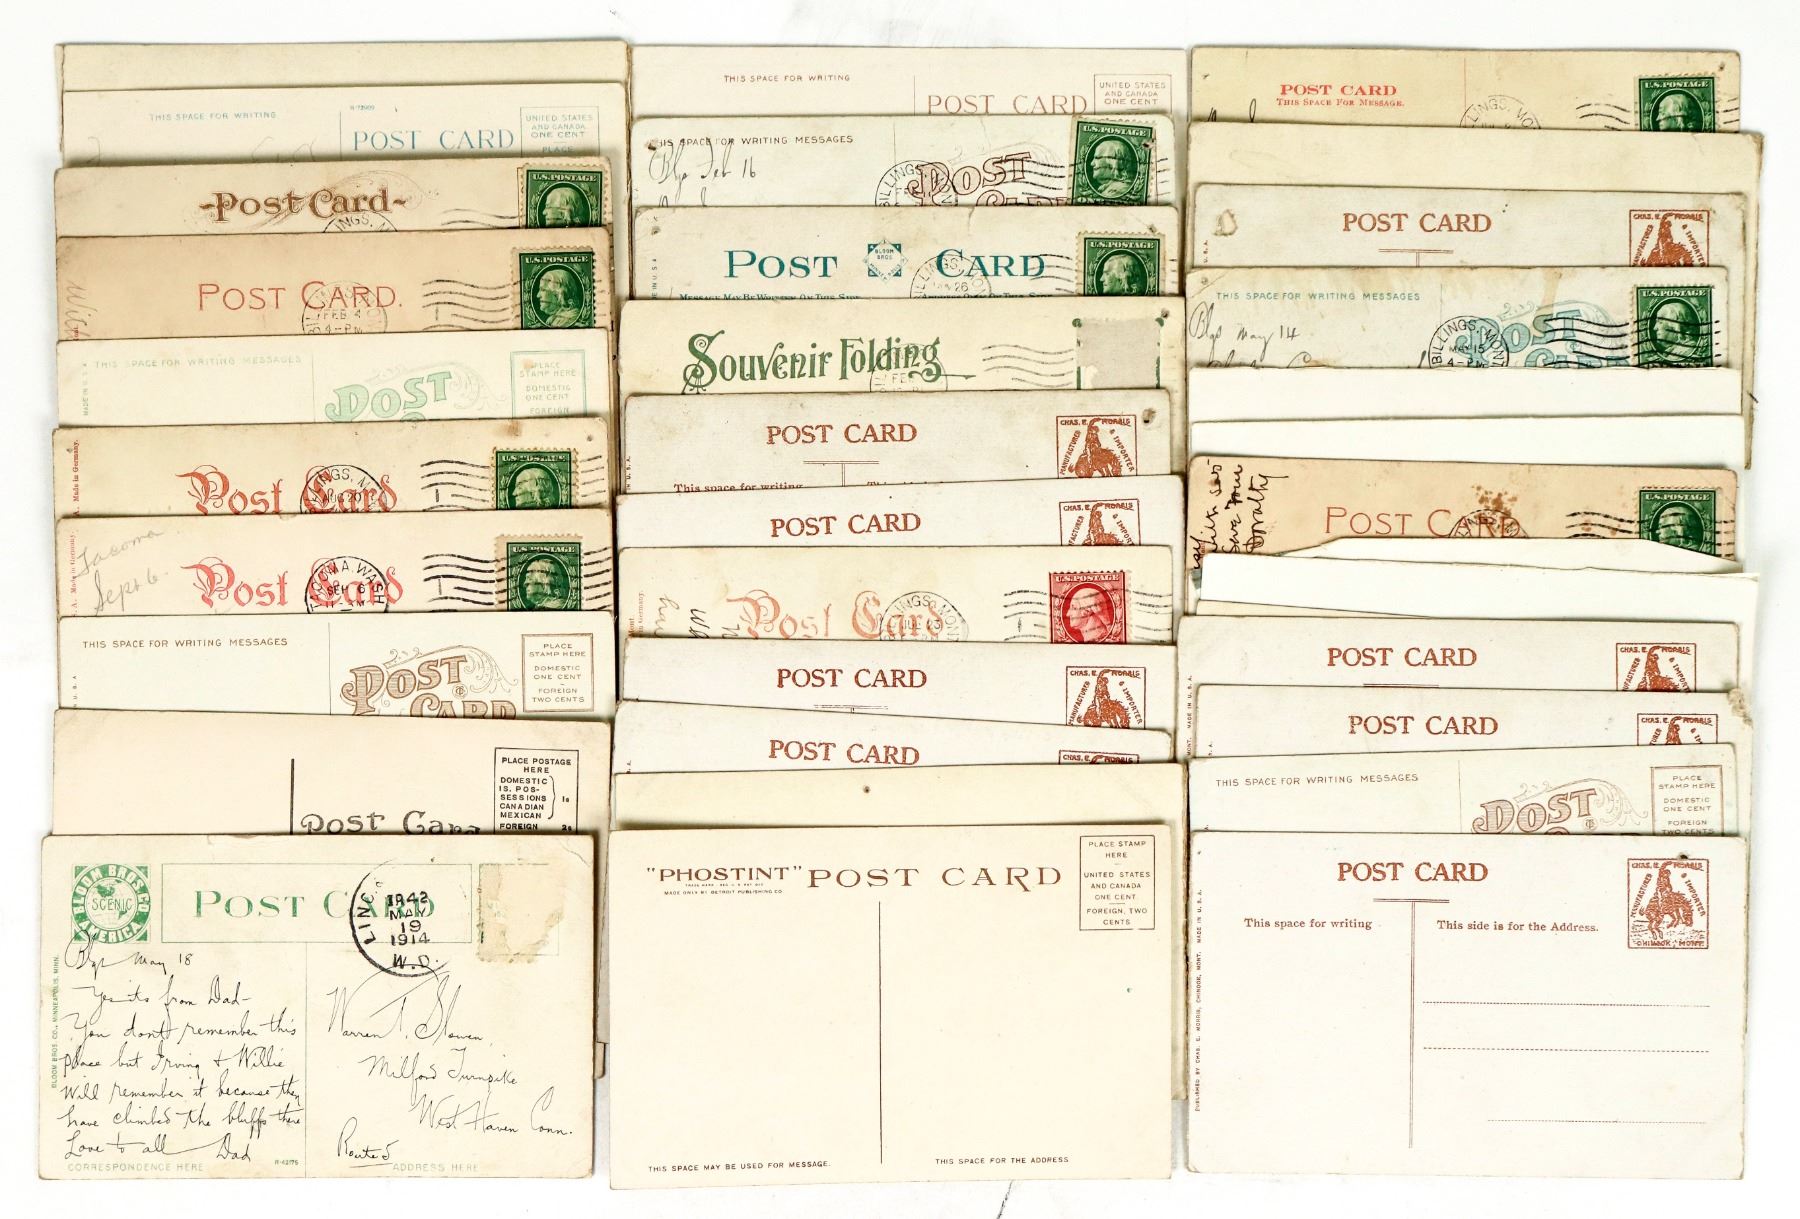 THIS SPACE FOR WRITING
R-72909
POST CARD
UNITED STATES
AND CANADA
ONE CENT
PLACE
-Post Card-
U.S. POSTAGE
POST CARD.
FEB 4
4-PM
U.S. POSTAGE
MADE IN U.S.A.
THIS SPACE FOR WRITING MESSAGES
POST
PLACE
STAMP HERE
DOMESTIC
ONE CENT
FOREIGN
Made in Germany.
Post Card
U.S. POSTAGE
Made in Germany.
Tacoma
Sept 6
Post Card
TACOMA, WASH
SEP 6
U.S. POSTAGE
THIS SPACE FOR WRITING MESSAGES
POST
CARD
PLACE
STAMP HERE
DOMESTIC
ONE CENT
FOREIGN
TWO CENTS
PLACE POSTAGE
HERE
DOMESTIC
IS. POS-
SESSIONS
CANADIAN
MEXICAN
FOREIGN
1c
2c
Post Card
BLOOM BROS. CO.
SCENIC
AMERICA
POST CARD
MAY
19
1914
W.D.
Blgs May 18
Yes its from Dad-
You don't remember this
place but Irving & Willie
will remember it because they
have climbed the bluffs there
Love to all Dad
Warren T. Slowen,
Milford Turnpike
West Haven Conn.
Route 5
BLOOM BROS. CO., MINNEAPOLIS, MINN.
CORRESPONDENCE HERE
R-42175
ADDRESS HERE
THIS SPACE FOR WRITING
POST CARD
UNITED STATES
AND CANADA
ONE CENT
THIS SPACE FOR WRITING MESSAGES
Blgs Feb 16
POST
CARD
BILLINGS,
U.S. POSTAGE
POST CARD
BLOOM
BROS
MESSAGE MAY BE WRITTEN ON THIS SIDE
26
U.S. POSTAGE
Souvenir Folding
FEB
POST CARD
This space for writing
CHAS. E. MORRIS
MANUFACTURER
& IMPORTER
POST CARD
CHAS. E. MORRIS
MANUFACTURER
& IMPORTER
Post Card
U.S. POSTAGE
POST CARD
CHAS. E. MORRIS
MANUFACTURER
& IMPORTER
POST CARD
CHAS. E. MORRIS
"PHOSTINT" POST CARD
MADE ONLY BY DETROIT PUBLISHING CO.
PLACE STAMP
HERE
UNITED STATES
AND CANADA
ONE CENT
FOREIGN, TWO
CENTS
THIS SPACE MAY BE USED FOR MESSAGE.
THIS SPACE FOR THE ADDRESS
POST CARD
THIS SPACE FOR MESSAGE.
BILLINGS, MONT
U.S. POSTAGE
POST CARD
CHAS. E. MORRIS
MANUFACTURER
& IMPORTER
THIS SPACE FOR WRITING MESSAGES
Blgs May 14
POST
CARD
BILLINGS, MONT
MAY 15
4-PM
U.S. POSTAGE
POST CARD
U.S. POSTAGE
POST CARD
CHAS. E. MORRIS
MANUFACTURER
& IMPORTER
POST CARD
CHAS. E. MORRIS
MANUFACTURER
& IMPORTER
THIS SPACE FOR WRITING MESSAGES
POST
PLACE
STAMP HERE
DOMESTIC
ONE CENT
FOREIGN
TWO CENTS
POST CARD
CHAS. E. MORRIS
MANUFACTURER
& IMPORTER
CHINOOK, MONT.
This space for writing
This side is for the Address.
PUBLISHED BY CHAS. E. MORRIS, CHINOOK, MONT. MADE IN U.S.A.